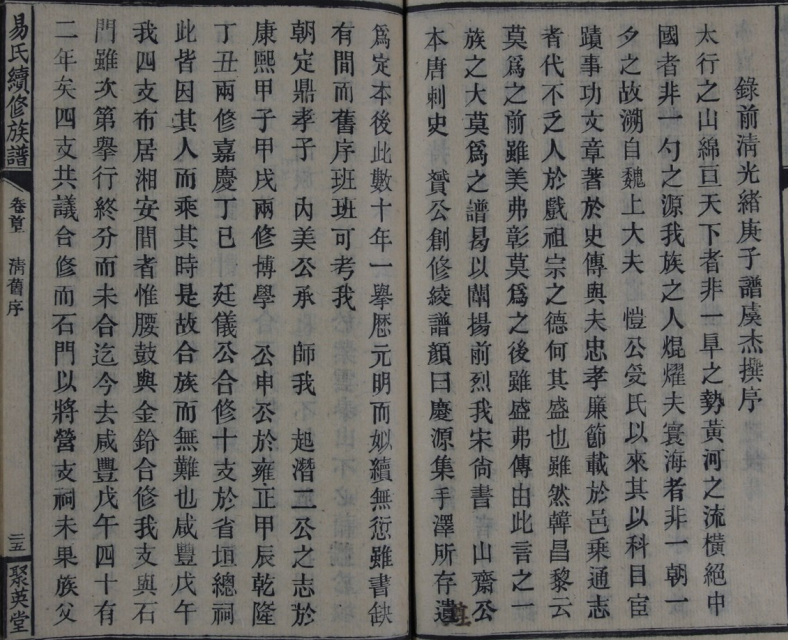 錄前清光緒庚子譜虞杰撰序
太行之山綿亘天下者非一阜之勢黃河之流橫絕中
國者非一勺之源我族之人焜燿夫寰海者非一朝一
夕之故溯自魏上大夫 愷公受氏以來其以科目宦
蹟事功文章著於史傳與夫忠孝廉節載於邑乘通志
者代不乏人於戲祖宗之德何其盛也雖然韓昌黎云
莫爲之前雖美弗彰莫爲之後雖盛弗傳由此言之一
族之大莫爲之譜曷以闡揚前烈我宋尙書 山齋公
本唐刺史 贇公創修綾譜顏曰慶源集手澤所存遵
爲定本後此數十年一舉歷元明而姒續無愆雖書缺
有間而舊序班班可考我
朝定鼎孝子 內美公承 師我 起潛二公之志於
康熙甲子甲戌兩修博學 公申公於雍正甲辰乾隆
丁丑兩修嘉慶丁巳 廷儀公合修十支於省垣總祠
此皆因其人而乘其時是故合族而無難也咸豐戊午
我四支布居湘安間者惟腰鼓與金鈴合修我支與石
門雖次第舉行終分而未合迄今去咸豐戊午四十有
二年矣四支共議合修而石門以將營支祠未果族父
易氏續修族譜
卷首 清舊序
三五
聚英堂